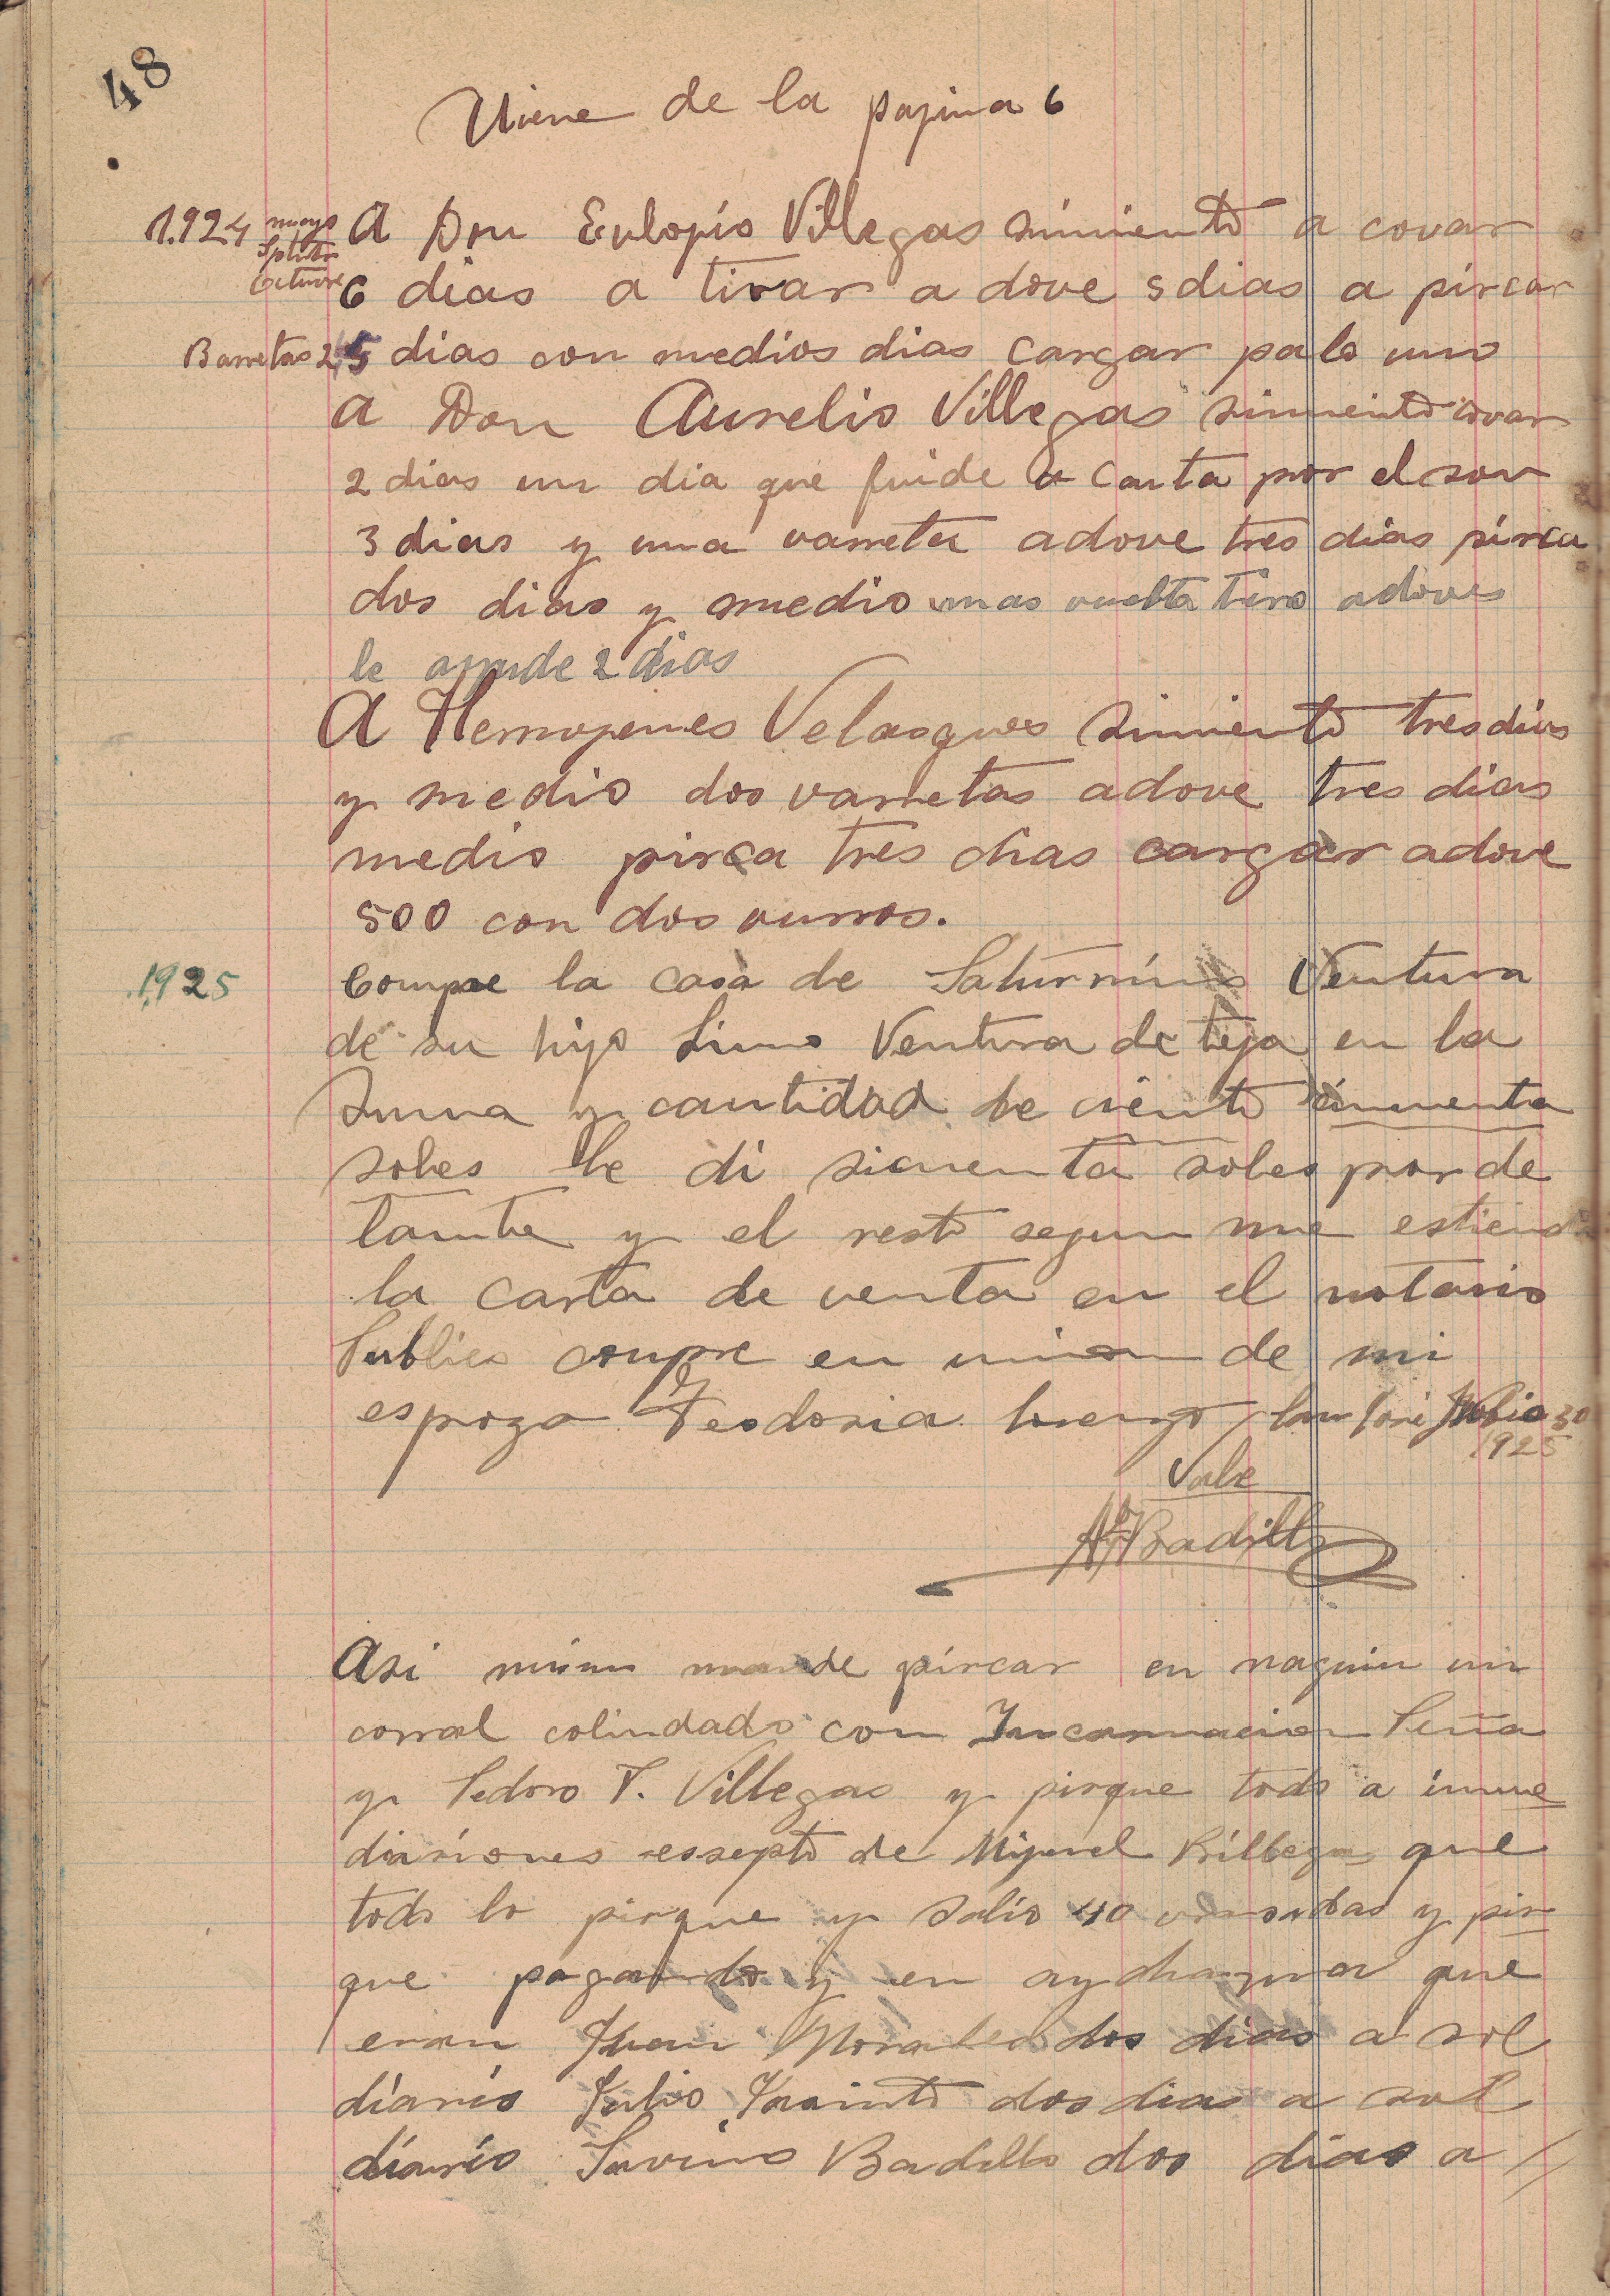 48
Viene de la pagina 6
1.924 mayo A Don Eulogio Villegas simiento a covar
Setbre
Octuvre 6 dias a tirar adove 5 dias a pircar
Barretas 2 5 dias con medios dias cargar palo uno
A Don Aurelio Villegas simiento covar
2 dias un dia que fuide a Canta por el son
3 dias y una varreta adove tres dias pirca
dos dias y medio mas vuelta tiro adoves
le ayude 2 dias
A Hermogenes Velasques simiento tres dias
y medio dos varretas adove tres dias
medio pirca tres dias cargar adove
500 con dos vurros.
1925 Compre la casa de Saturnino Ventura
de su hijo Lino Ventura de teja en la
suma y cantidad de ciento cincuenta
soles le di sicuenta soles por de
lante y el resto segun me estiend
la carta de venta en el notario
Publico compre en union de mi
espoza Teodosia Lorenzo San José Julio 30
1925
Vale
A Badillo
Asi mismo mande pircar en naguin un
corral colindado con Incarnacion Peña
y Pedro T. Villegas y pirque todo a imme
diasiones essepto de Miguel Billegas que
todo lo pirque y salio 40 y pir
que pagando y en que
eran Juan Morales dos dias a sol
diario Julio Jasinto dos dias a sol
diario Savino Badillo dos dias a //